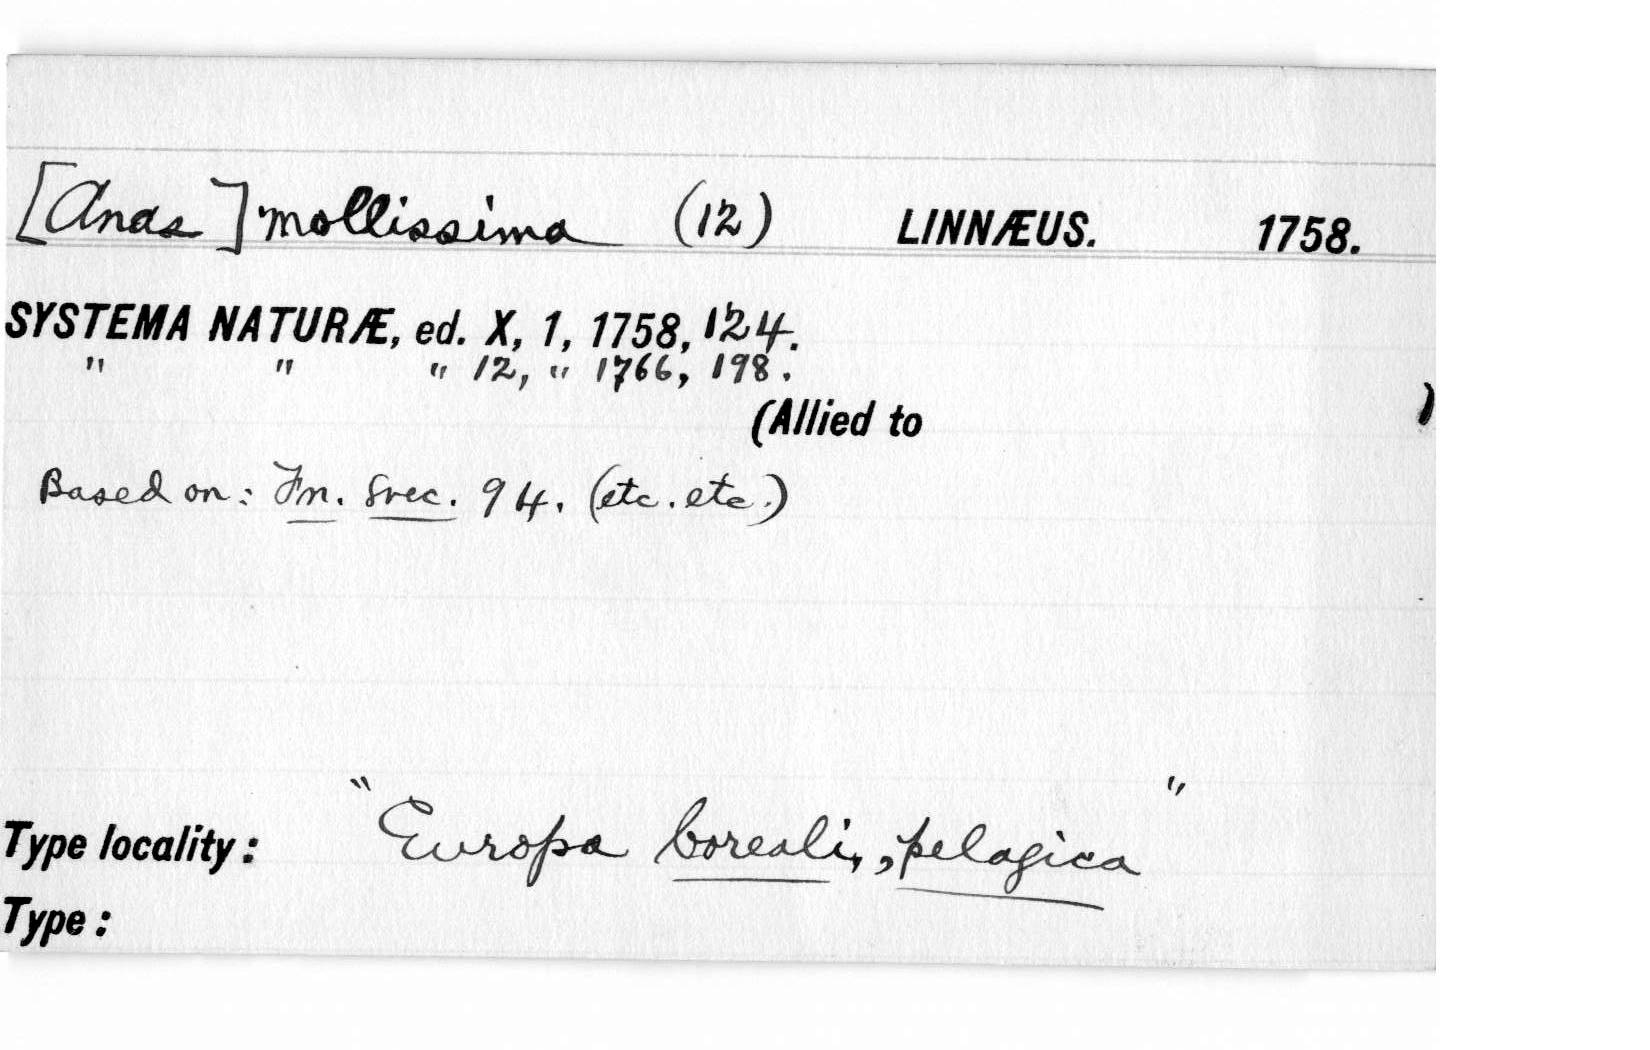 [Anas] mollissima (12) LINNÆUS. 1758.
SYSTEMA NATURÆ, ed. X, 1, 1758, 124.
" " " 12, " 1766, 198.
(Allied to )
Based on: Fn. Svec. 94. (etc. etc.)
Type locality: "Europa boreali, pelagica"
Type: